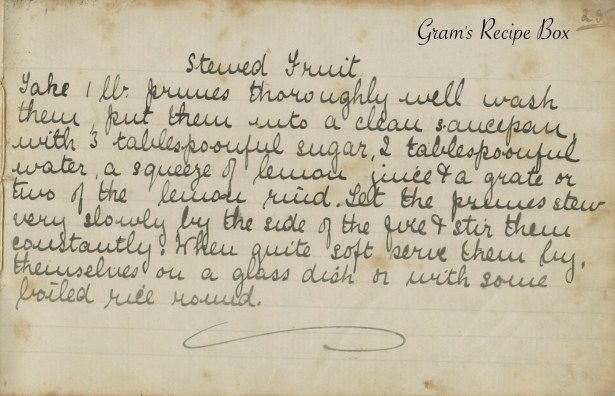 Gram's Recipe Box
Stewed Fruit
Take 1 lb. prunes thoroughly well wash
them, put them into a clean saucepan,
with 3 tablespoonful sugar, 2 tablespoonful
water, a squeeze of lemon juice & a grate or
two of the lemon rind. Let the prunes stew
very slowly by the side of the fire & stir them
constantly. When quite soft serve them by,
themselves on a glass dish or with some
boiled rice round.